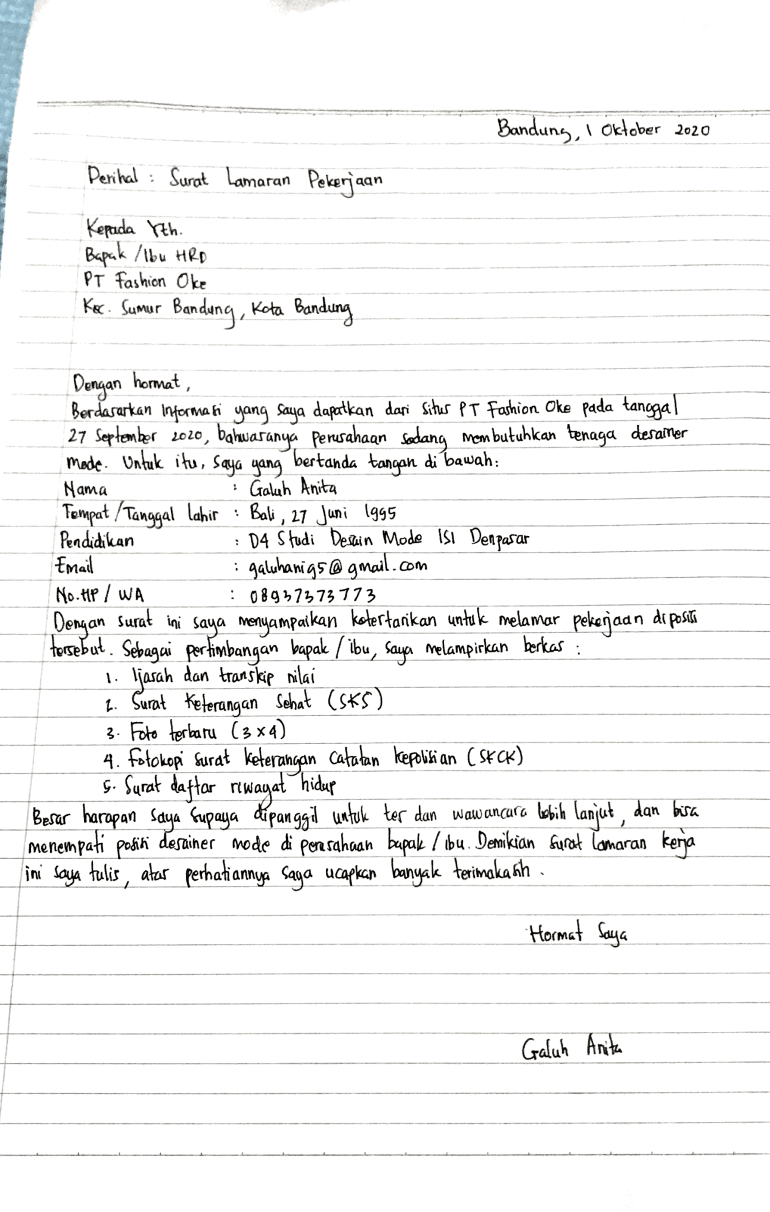 Bandung, 1 Oktober 2020
Perihal : Surat Lamaran Pekerjaan
Kepada Yth.
Bapak / Ibu HRD
PT Fashion Oke
Kec. Sumur Bandung, Kota Bandung
Dengan hormat,
Berdasarkan Informasi yang saya dapatkan dari situs PT Fashion Oke pada tanggal
27 September 2020, bahwasanya perusahaan sedang membutuhkan tenaga desainer
mode. Untuk itu, saya yang bertanda tangan di bawah:
Nama : Galuh Anita
Tempat / Tanggal lahir : Bali, 27 Juni 1995
Pendidikan : D4 Studi Desain Mode ISI Denpasar
Email : galuhani95@gmail.com
No.HP / WA : 08937373773
Dengan surat ini saya menyampaikan ketertarikan untuk melamar pekerjaan di posisi
tersebut. Sebagai pertimbangan bapak / ibu, saya melampirkan berkas :
1. Ijasah dan transkip nilai
2. Surat Keterangan Sehat (SKS)
3. Foto terbaru (3 x 4)
4. Fotokopi surat keterangan catatan kepolisian (SKCK)
5. Surat daftar riwayat hidup
Besar harapan saya supaya dipanggil untuk tes dan wawancara lebih lanjut, dan bisa
menempati posisi desainer mode di perusahaan bapak / ibu. Demikian surat lamaran kerja
ini saya tulis, atas perhatiannya saya ucapkan banyak terimakasih.
Hormat Saya
Galuh Anita